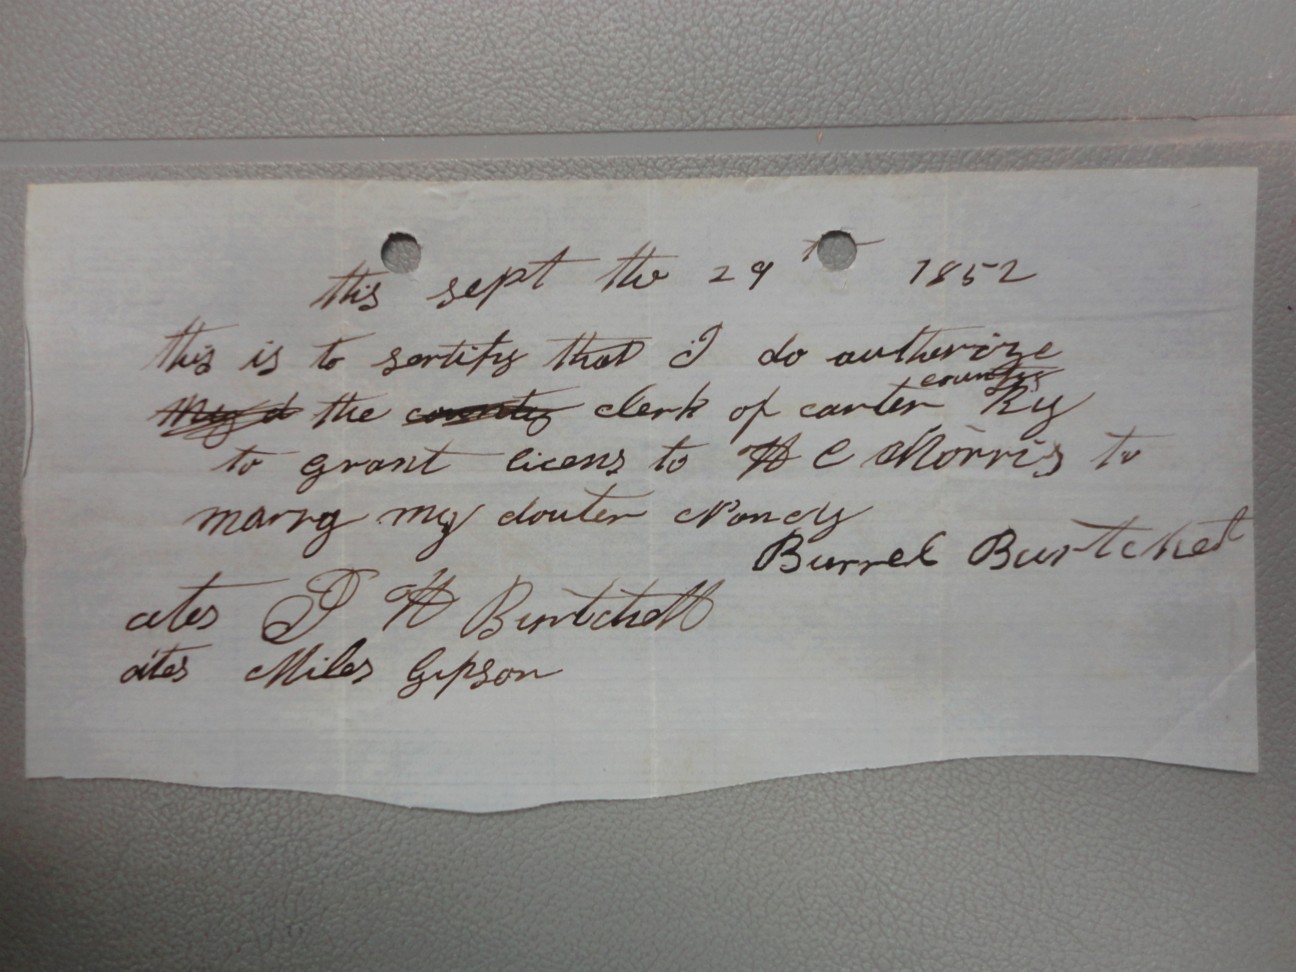 this sept the 29th 1852
this is to sertify that I do autherize
the county clerk of carter county Ky
to grant licens to H C Morris to
marry my douter Nancy
Burrel Burtchet
ates J H Burtchett
ates Miles Gipson